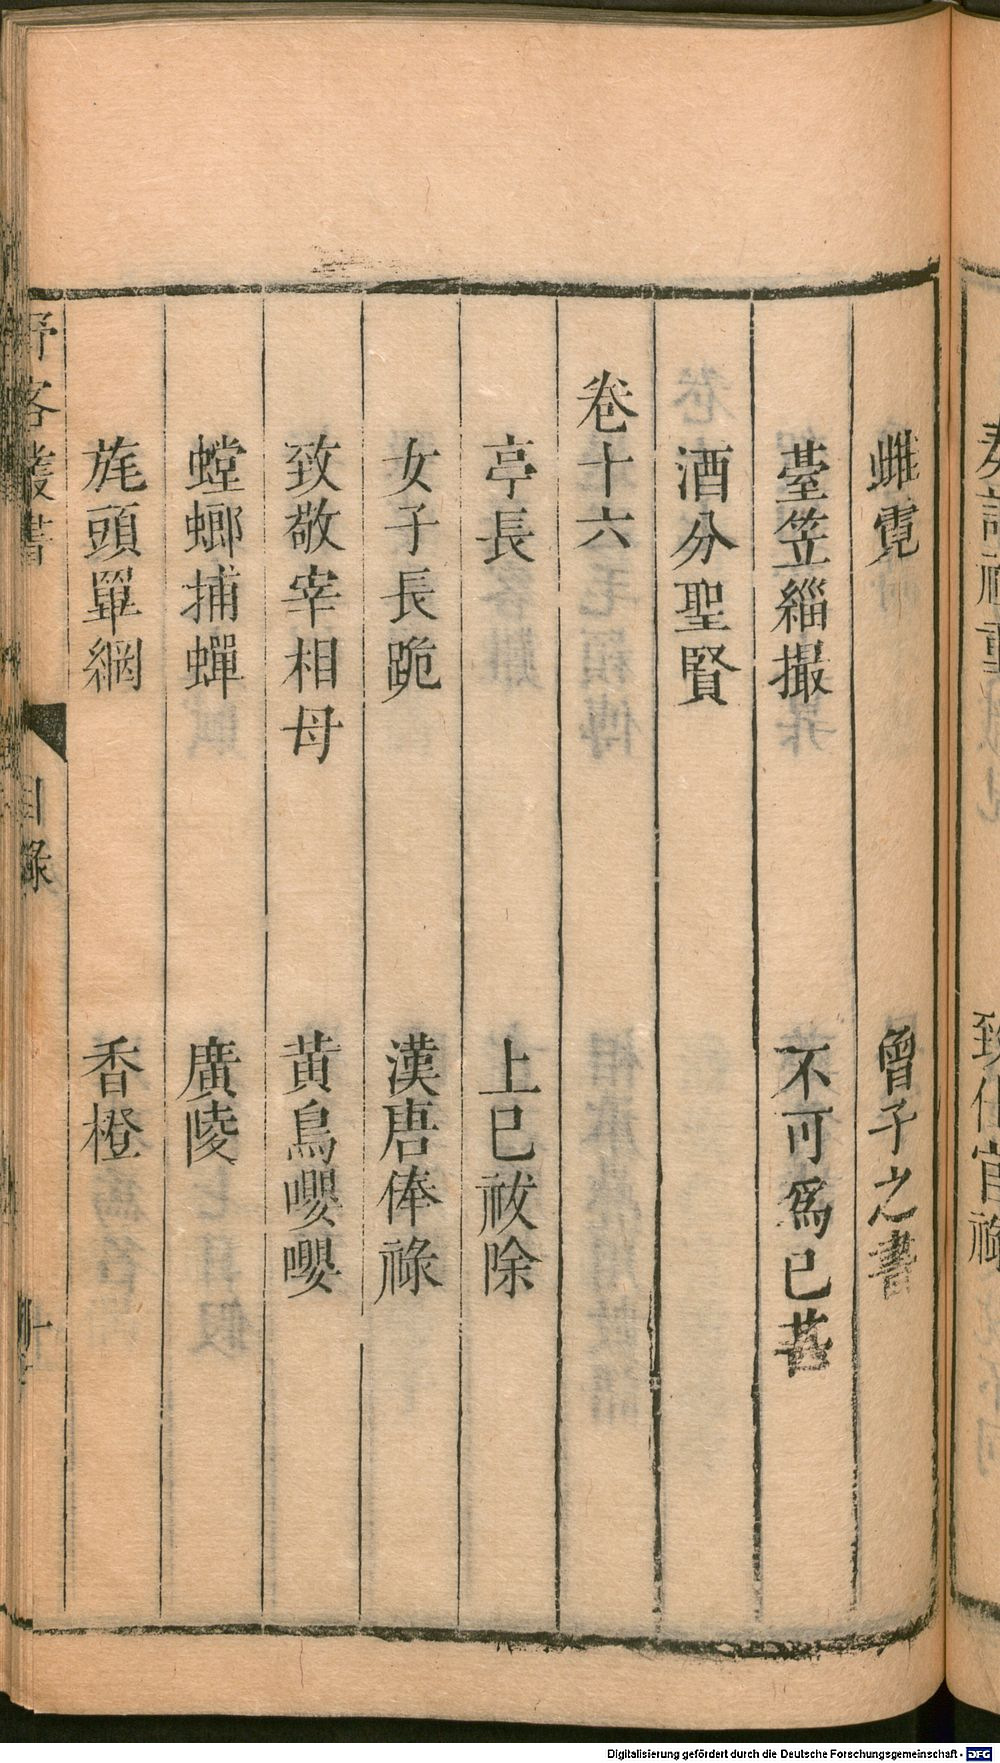 雌霓　曾子之書
薹笠緇撮　不可爲已甚
酒分聖賢
卷十六
亭長　上巳祓除
女子長跪　漢唐俸祿
致敬宰相母　黄鳥嚶嚶
螳螂捕蟬　廣陵
旄頭罼網　香橙
野客叢書　目錄
致仕官祿
Digitalisierung gefördert durch die Deutsche Forschungsgemeinschaft - DFG